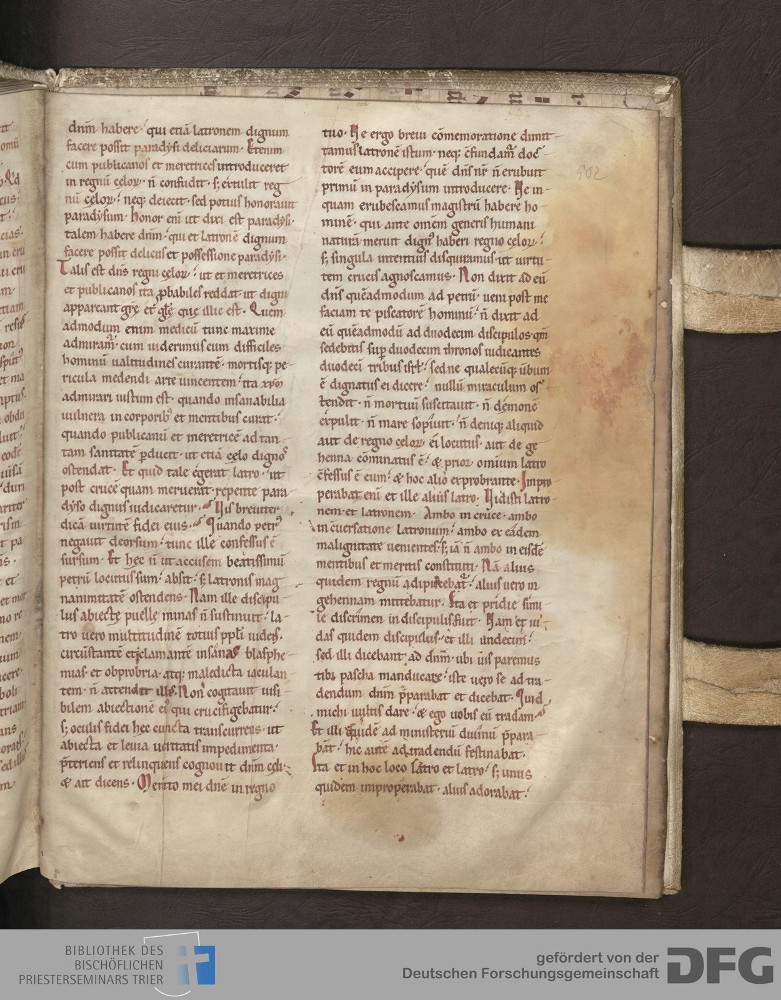 dnm habere · qui etiā latronem dignum
facere possit paradysi deliciarum · Etenim
cum publicanos et meretrices introduceret
in regnū celoꝝ · n̄ confudit · sꝫ extulit reg
nū celoꝝ · neqꝫ deiecit · sed potius honorauit
paradysum · honor eni ut dixi est paradysi ·
talem habere dnm · qui et latronē dignum
facere possit deliciis et possessione paradysi ·
Talis est dns regni celoꝝ · ut et meretrices
et publicanos ita ꝓbabiles reddat · ut digni
appareant gre et gle que illic est · Quem
admodum enim medicū tunc maxime
admiram · cum uiderimus eum difficiles
hominū ualitudines curantē · mortisqꝫ pe
ricula medendi arte uincentem · ita xpm
admirari iustum est · quando insanabilia
uulnera in corporibꝰ et mentibus curat ·
quando publicanū et meretricē ad tan
tam sanitatē ꝑducit · ut etiā celo dignos
ostendat · Et quid tale egerat latro · ut
post crucē quam meruerat · repente para
dyso dignus iudicaretur · Uis breuiter
dicā uirtutē fidei eius · Quando petrꝰ
negauit deorsum · tunc ille confessus ē
sursum · Et hec n̄ ut accusem beatissimū
petrū locutus sum · absit · sꝫ latronis mag
nanimitatē ostendens · Nam ille discipu
lus abiecte puelle minas n̄ sustinuit · la
tro uero multitudinē totius ppli iudeis ·
circūstantē et clamantē insanas blasphe
mias · et obprobria · atqꝫ maledicta iaculan
tem · n̄ attendit ille · Non cogitauit uisi
bilem abiectionē ei qui crucifigebatur ·
sꝫ oculis fidei hec cuncta transcurrens · ut
abiecta et leuia ueritatis impedimenta ·
pteriens et relinquens cognouit dnm celi
& ait dicens · Memto mei dnē in regno
tuo · Ne ergo breui cōmemoratione dimit
tamus latronē istum · neqꝫ cfundam doc
torē eum accipere · quē dns nr n̄ erubuit
primū in paradysum introducere · Ne in
quam erubescamus magistrū habere ho
minē · qui ante omem generis humani
naturā meruit dignꝰ haberi regno celoꝝ ·
sꝫ singula intentius disquiramus · ut uirtu
tem crucis agnoscamus · Non dixit ad eū
dns quēadmodum ad petrū · ueni post me
faciam te piscatorē hominū · n̄ dixit ad
eū quēadmodū ad duodecim discipulos · qm
sedebitis sup duodecim thronos iudicantes
duodecī tribus isrl · sed ne qualecūqꝫ uerbum
ē dignatus ei dicere · nullū miraculum os
tendit · n̄ mortuū suscitauit · n̄ demonē
expulit · n̄ mare sopiuit · n̄ deniqꝫ aliquid
aut de regno celoꝝ · ei locutus · aut de ge
henna cominatus ē · & prior omnium latro
cfessus ē eum · & hoc alio exprobrante · Impro
perabat eni et ille alius latro · Uidisti latro
nem et latronem · Ambo in cruce · ambo
in cuersatione latronum · ambo ex eadem
malignitate uenientes · sꝫ iā n̄ ambo in eisdē
mentibus et meritis constituti · Nā alius
quidem regnū adipiscebat · alius uero in
gehennam mittebatur · Ita et pridie simi
le discrimen in discipulis fuit · Nam et iu
das quidem discipulus · et illi undecim ·
sed illi dicebant · ad dnm · ubi uis paremus
tibi pascha manducare · iste uero se ad tra
dendum dnm pparabat et dicebat · Quid
michi uultis dare · & ego uobis eū tradam
Et illi quidē ad ministeriū diuinū ppara
bāt · hic autē ad tradendū festinabat ·
Ita et in hoc loco latro et latro · sꝫ unus
quidem improperabat · alius adorabat ·
502
BIBLIOTHEK DES
BISCHÖFLICHEN
PRIESTERSEMINARS TRIER
gefördert von der
Deutschen Forschungsgemeinschaft
DFG